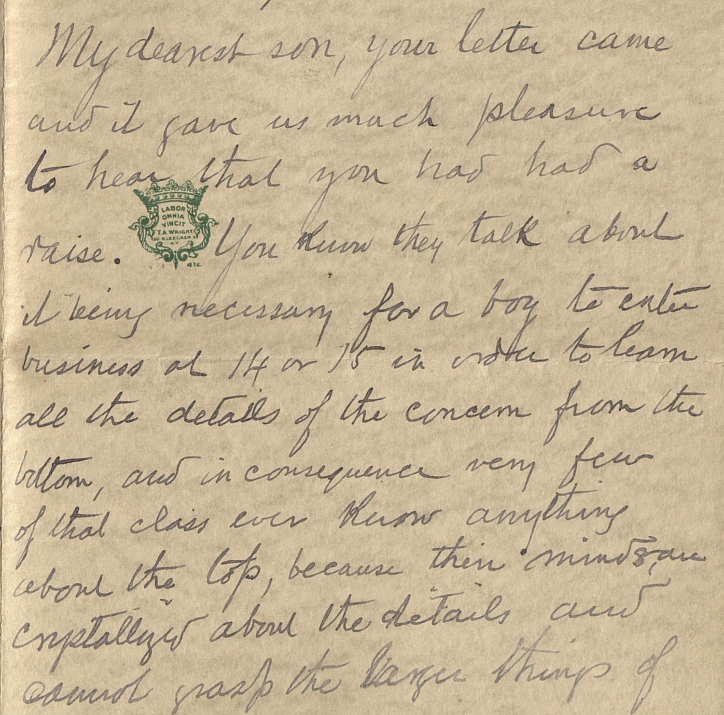 My dearest son, your letter came
and it gave us much pleasure
to hear that you had had a
LABOR
OMNIA
VINCIT
T.A. WRIGHT
raise. You know they talk about
it being necessary for a boy to enter
business at 14 or 15 in order to learn
all the details of the concern from the
bottom, and in consequence very few
of that class ever know anything
about the top, because their minds are
crystallized about the details and
cannot grasp the larger things of